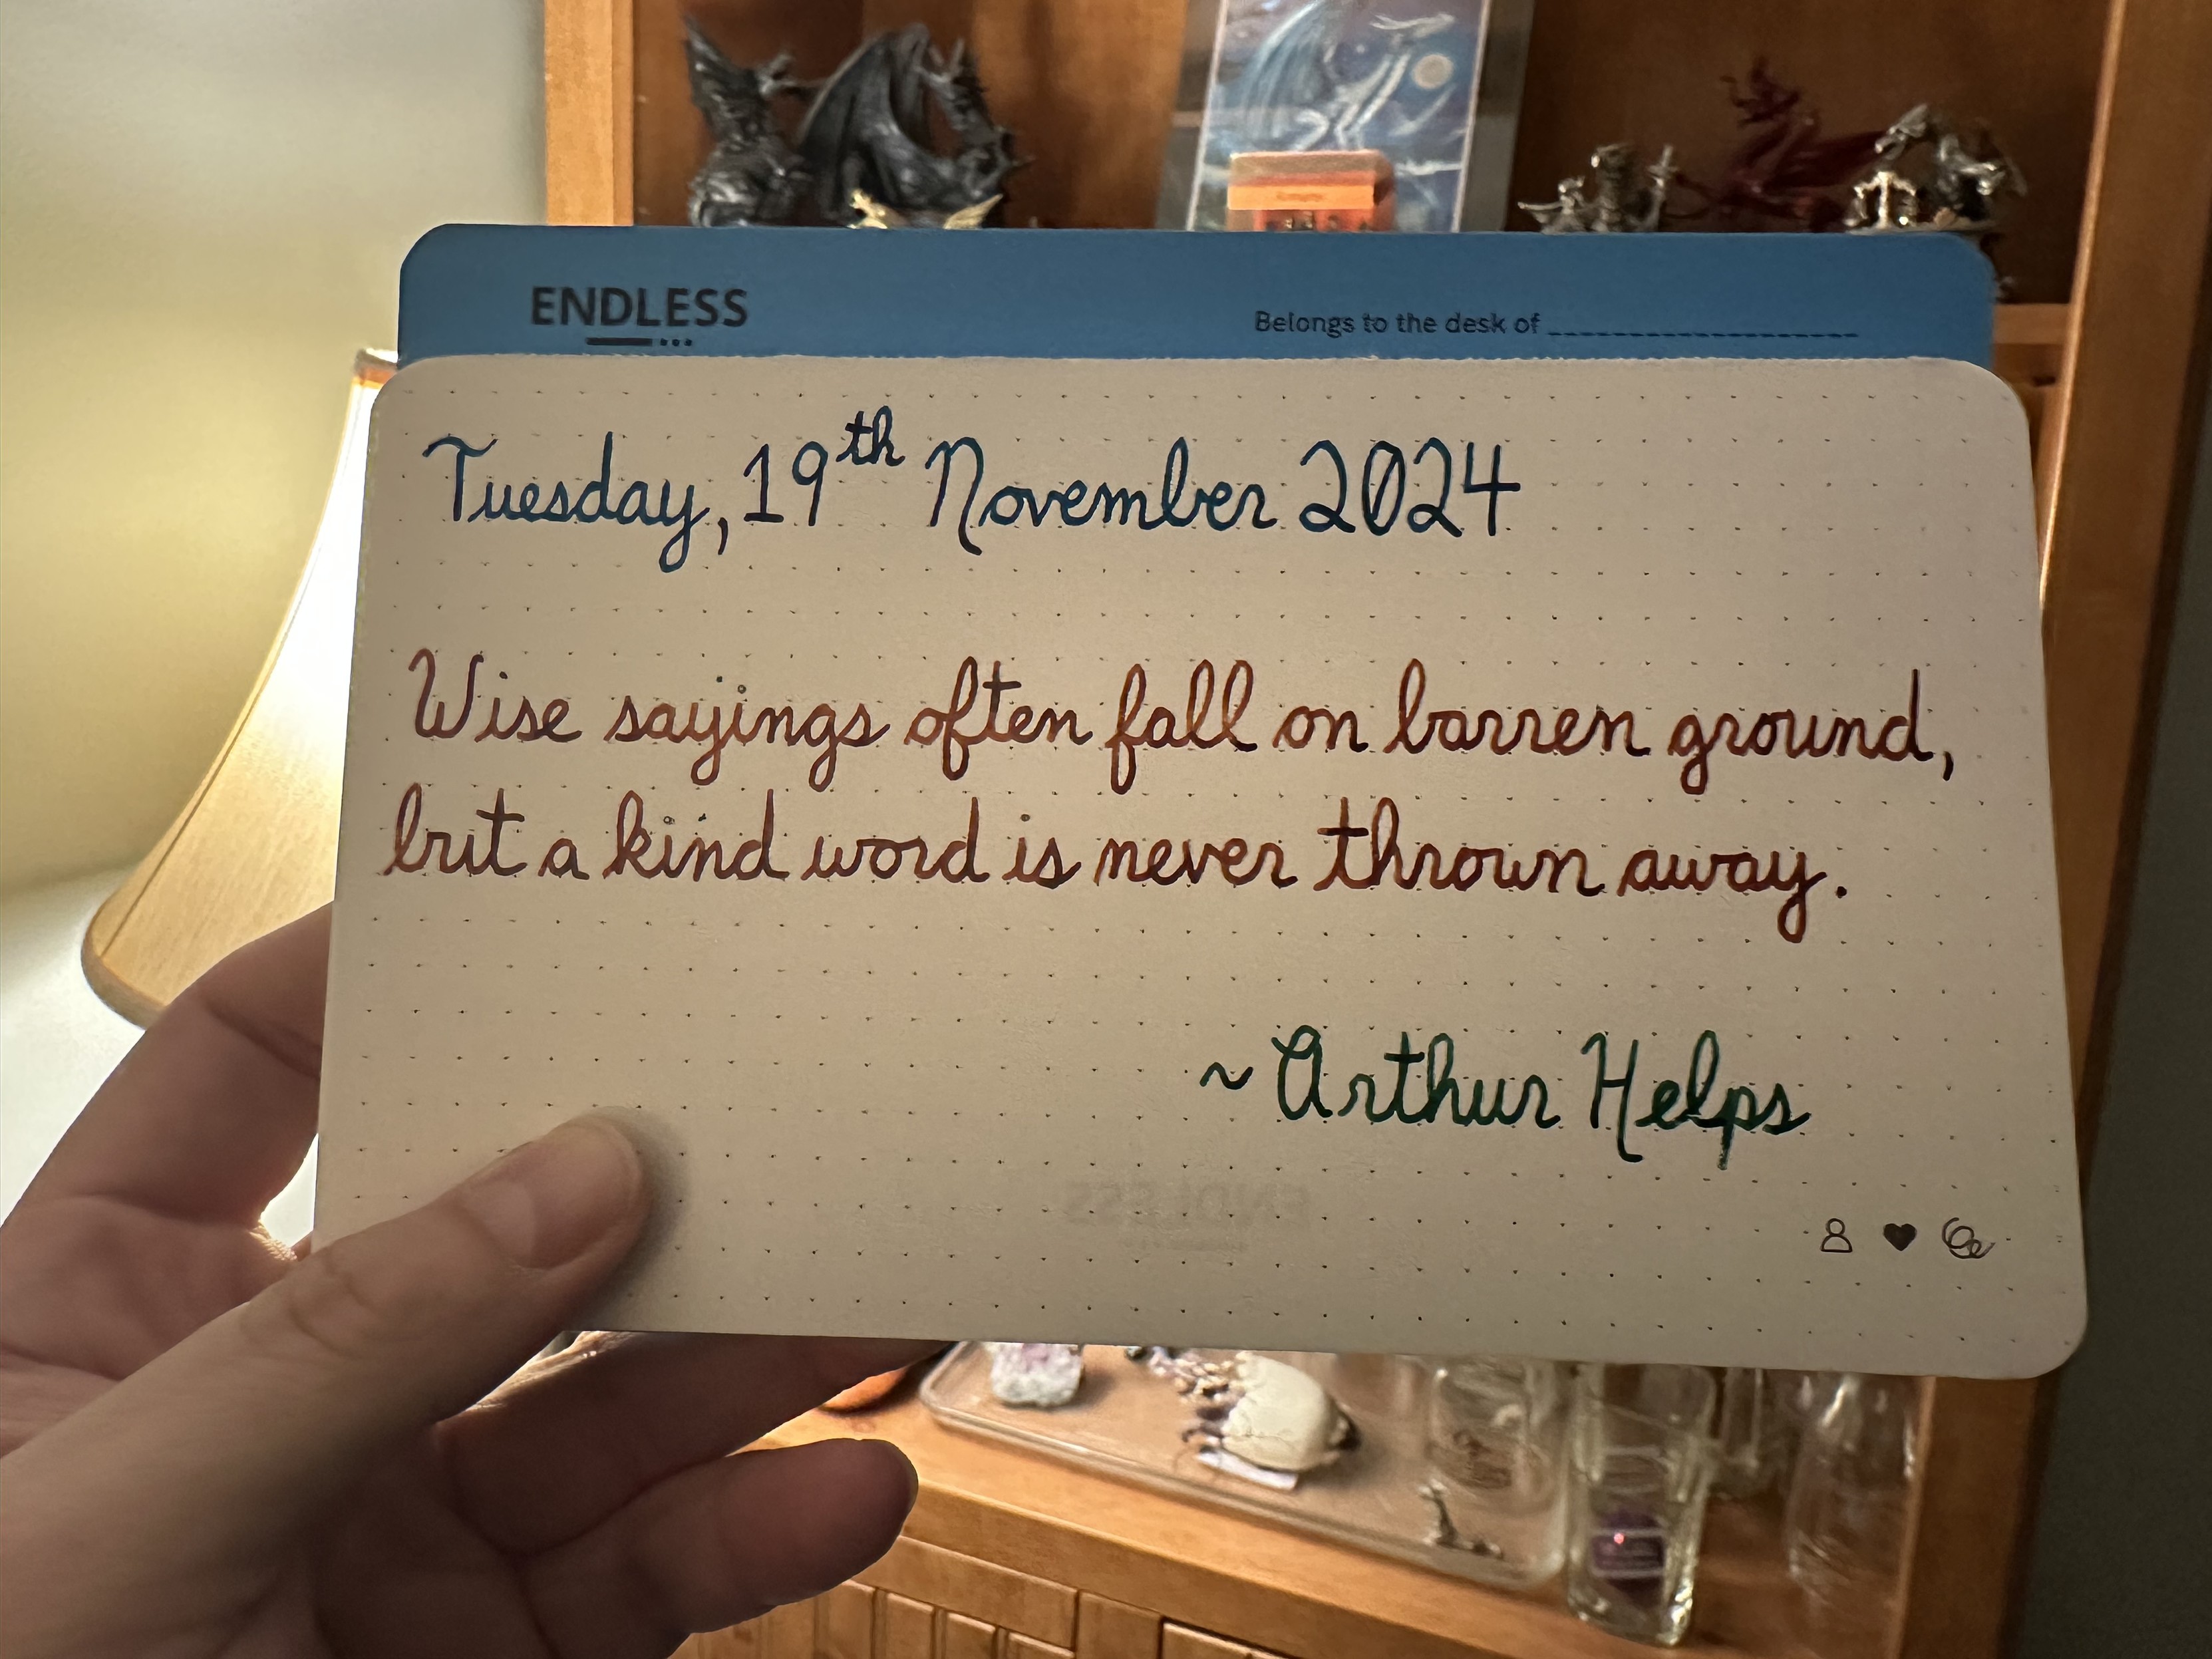 ENDLESS
Belongs to the desk of
Tuesday, 19th November 2024
Wise sayings often fall on barren ground,
but a kind word is never thrown away.
~ Arthur Helps
ENDLESS